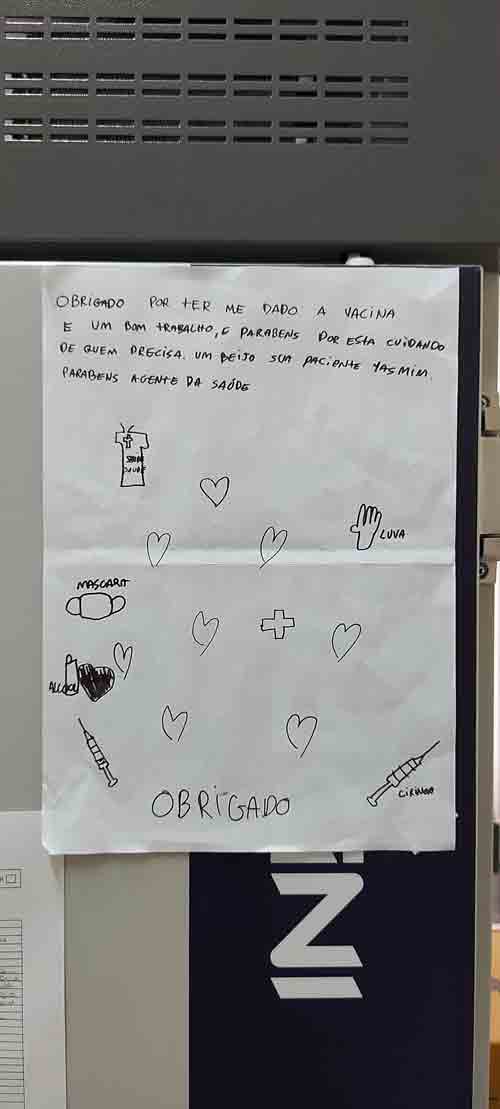 OBRIGADO POR TER ME DADO A VACINA
E UM BOM TRABALHO, E PARABENS POR ESTA CUIDANDO
DE QUEM PRECISA. UM BEIJO SUA PACIENTE YASMIM.
PARABENS AGENTE DA SAÚDE
SAÚDE
LUVA
MASCARA
ALCOOL
CIRINGA
OBRIGADO